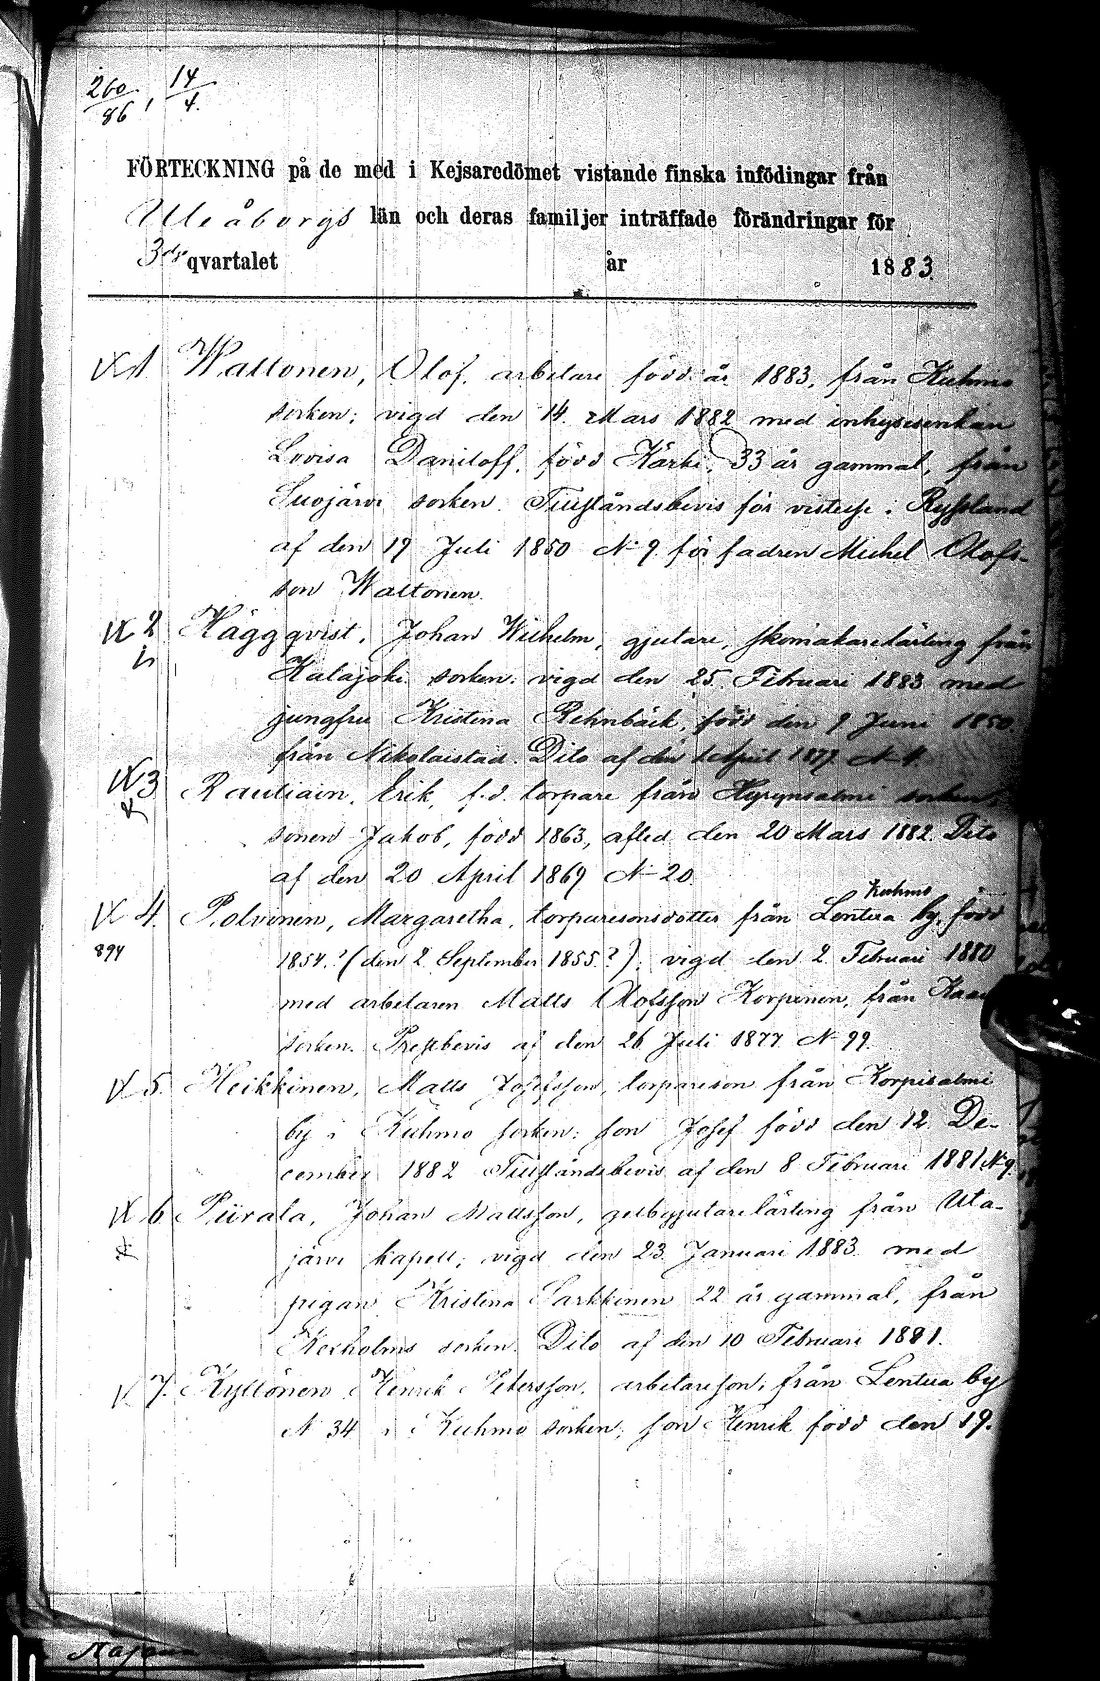 260/86, 14/4.
FÖRTECKNING på de med i Kejsaredömet vistande finska infödingar från
Uleåborgs län och deras familjer inträffade förändringar för
3dje qvartalet år 1883.
1 Waltonen, Olof, arbetare född år 1883, från Kuhmo
sorken; vigd den 14. Mars 1882 med inhysesenkan
Lovisa Daniloff, född Kärki, 33 år gammal, från
Suojärvi sorken. Tillståndsbevis för vistelse i Ryssland
af den 19 Juli 1850 N 9 för fadren Michel Olofs-
son Waltonen.
2 Häggqvist, Johan Wilhelm, gjutare, skomakarelärling från
Kalajoki sorken; vigd den 25. Februari 1883 med
jungfru Kristina Rehnbäck, född den 9 Juni 1850
från Nikolaistad. Dito af den 1 April 1877 N 4.
3 Rautiain, Erik, f.d. torpare från Hyrynsalmi sorken;
sonen Jakob, född 1863, afled den 20 Mars 1882. Dito
af den 20 April 1869 N 20.
Kuhmo
4. Polvinen, Margaretha, torparesonsdotter från Lentua by, född
894
1854.? (den 2 September 1855.?); vigd den 2 Februari 1880
med arbetaren Matts Olofsson Korpinen, från
sorken. Prestbevis af den 26 Juli 1877 N 99.
5. Heikkinen, Matts Josefsson, torpareson från Korpisalmi
by i Kuhmo sorken; son Josef född den 12 De-
cember 1882 Tillståndsbevis af den 8 Februari 1881 N 9.
6 Piirala, Johan Mattsson, gelbgjutarelärling från Uta-
järvi kapell; vigd den 23. Januari 1883 med
pigan Kristina Sarkkinen 22 år gammal, från
Kexholms sorken. Dito af den 10 Februari 1881.
7. Kyllönen Henrik Petersson, arbetareson, från Lentua by
N 34 i Kuhmo sorken; son Henrik född den 19.